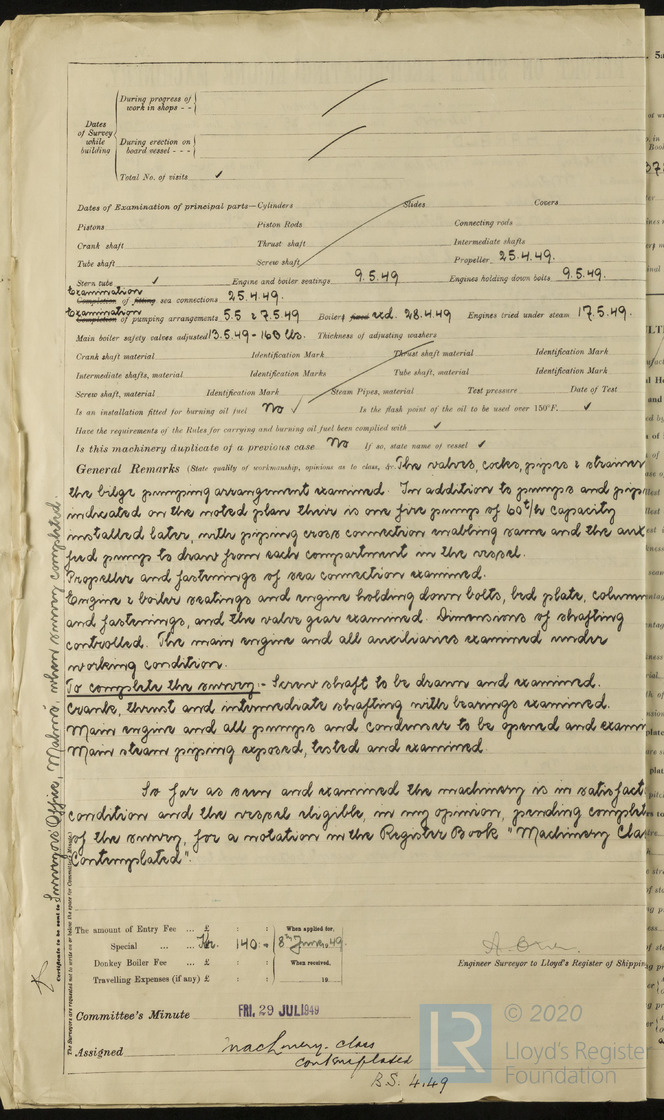 During progress of
work in shops - -
Dates
of Survey
while
building
During erection on
board vessel - - -
Total No. of visits ✓
Dates of Examination of principal parts—Cylinders Slides Covers
Pistons Piston Rods Connecting rods
Crank shaft Thrust shaft Intermediate shafts
Tube shaft Screw shaft Propeller 25.4.49.
Stern tube ✓ Engine and boiler seatings 9.5.49 Engines holding down bolts 9.5.49.
Examination
Completion of fitting sea connections 25.4.49.
Examination
Completion of pumping arrangements 5.5 & 7.5.49 Boilers fixed exd. 28.4.49 Engines tried under steam 17.5.49.
Main boiler safety valves adjusted 13.5.49 - 160 lbs. Thickness of adjusting washers
Crank shaft material Identification Mark Thrust shaft material Identification Mark
Intermediate shafts, material Identification Marks Tube shaft, material Identification Mark
Screw shaft, material Identification Mark Steam Pipes, material Test pressure Date of Test
Is an installation fitted for burning oil fuel No ✓ Is the flash point of the oil to be used over 150°F. ✓
Have the requirements of the Rules for carrying and burning oil fuel been complied with ✓
Is this machinery duplicate of a previous case No If so, state name of vessel ✓
General Remarks (State quality of workmanship, opinions as to class, &c. The valves, cocks, pipes & strainer
the bilge pumping arrangement examined. In addition to pumps and pip
indicated on the noted plan their is one fire pump of 60 t/h capacity
installed later, with piping cross connection enabling same and the aux
feed pump to draw from each compartment in the vessel.
Propeller and fastenings of sea connection examined.
Engine & boiler seatings and engine holding down bolts, bed plate, column
and fastenings, and the valve gear examined. Dimensions of shafting
controlled. The main engine and all auxiliaries examined under
working condition.
To complete the survey:- Screw shaft to be drawn and examined.
Crank, thrust and intermediate shafting with bearings examined.
Main engine and all pumps and condenser to be opened and exam
Main steam piping exposed, tested and examined
So far as seen and examined the machinery is in satisfact
condition and the vessel eligible, in my opinion, pending complet
of the survey, for a notation in the Register Book "Machinery Cla
Contemplated".
Certificate to be sent to Surveyors Office, Malmö, when survey completed.
The Surveyors are requested not to write on or below the space for Committee's Minute.
The amount of Entry Fee ... £ : : When applied for,
Special ... ... Kr. 140: 8th June 1949.
Donkey Boiler Fee ... £ : : When received,
Travelling Expenses (if any) £ : : 19
Engineer Surveyor to Lloyd's Register of Shipping
Committee's Minute FRI. 29 JUL 1949
Assigned Machinery class
contemplated
B.S. 4.49
LR
© 2020
Lloyd's Register
Foundation